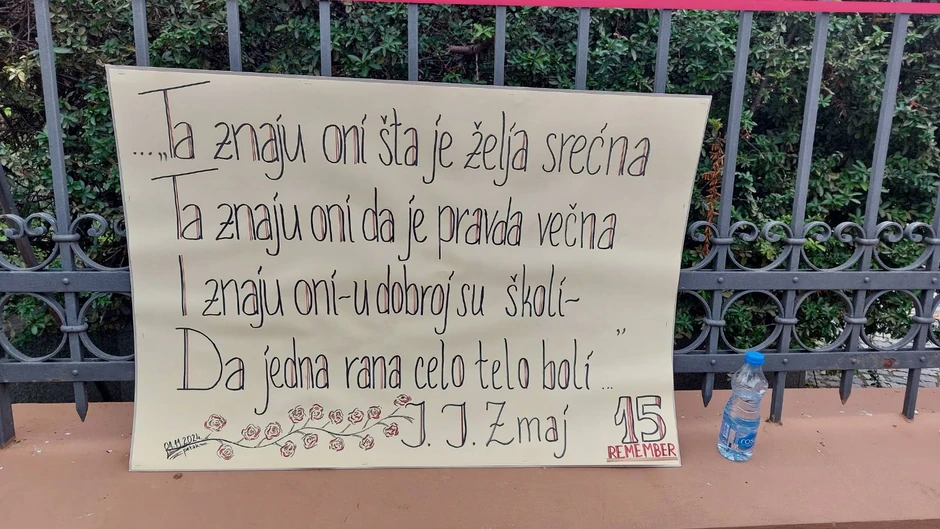 ..."Ta znaju oni šta je želja srećna
Ta znaju oni da je pravda večna
I znaju oni-u dobroj su školi-
Da jedna rana celo telo boli..."
J. J. Zmaj
15
REMEMBER
01.11.2024
rosa